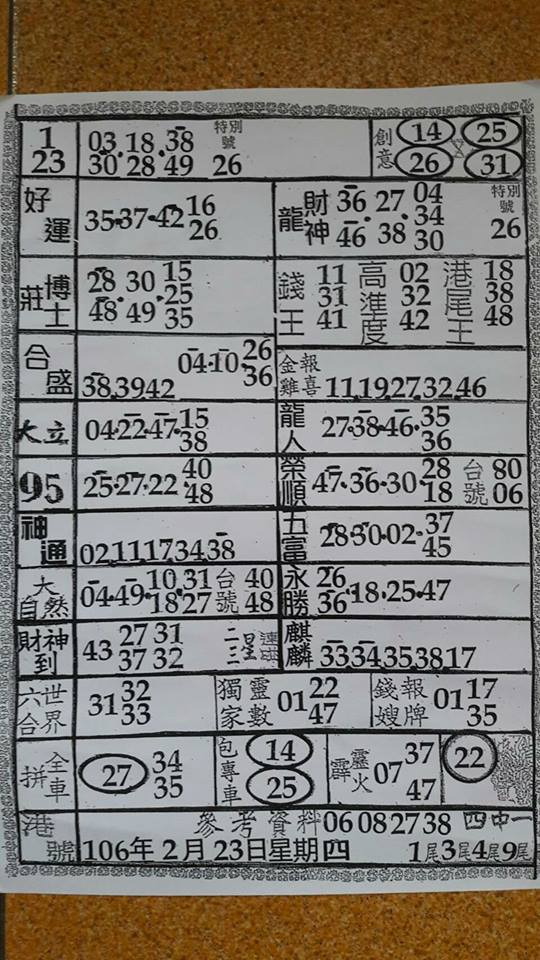 1 03.18.38 特別號 創意 14 25
23 30 28 49 26 26 31
好運 35.37.42.16 26
龍 財神 36 27 04 特別號
34
46 38 30 26
莊博士 28 30 15
25
48 49 35
錢王 11 31 41 高準度 02 32 42 港尾王 18 38 48
合盛 04.10.26 36
38,39,42
金雞報喜 11,19,27,32,46
大立 04.22.47.15 38
龍人 27.38.46.35 36
95 25.27.22 40 48
榮順 47.36.30.28 18 台號 80 06
神通 02,11,17,34,38
五富 28.30.02.37 45
大自然 04.49.10,31 18 27 台號 40 48
永勝 26 36.18.25.47
財神到 43 27 31 二三星連碰
37 32
麒麟 33,34,35,38,17
六合世界 31 32 33
獨家靈數 01 22 47
錢嫂報牌 01 17 35
拼全車 27 34 35
包專車 14 25
霹靂火 07 37 47
22
港號 參考資料 06 08 27 38 四中一
106年2月23日星期四 1尾3尾4尾9尾